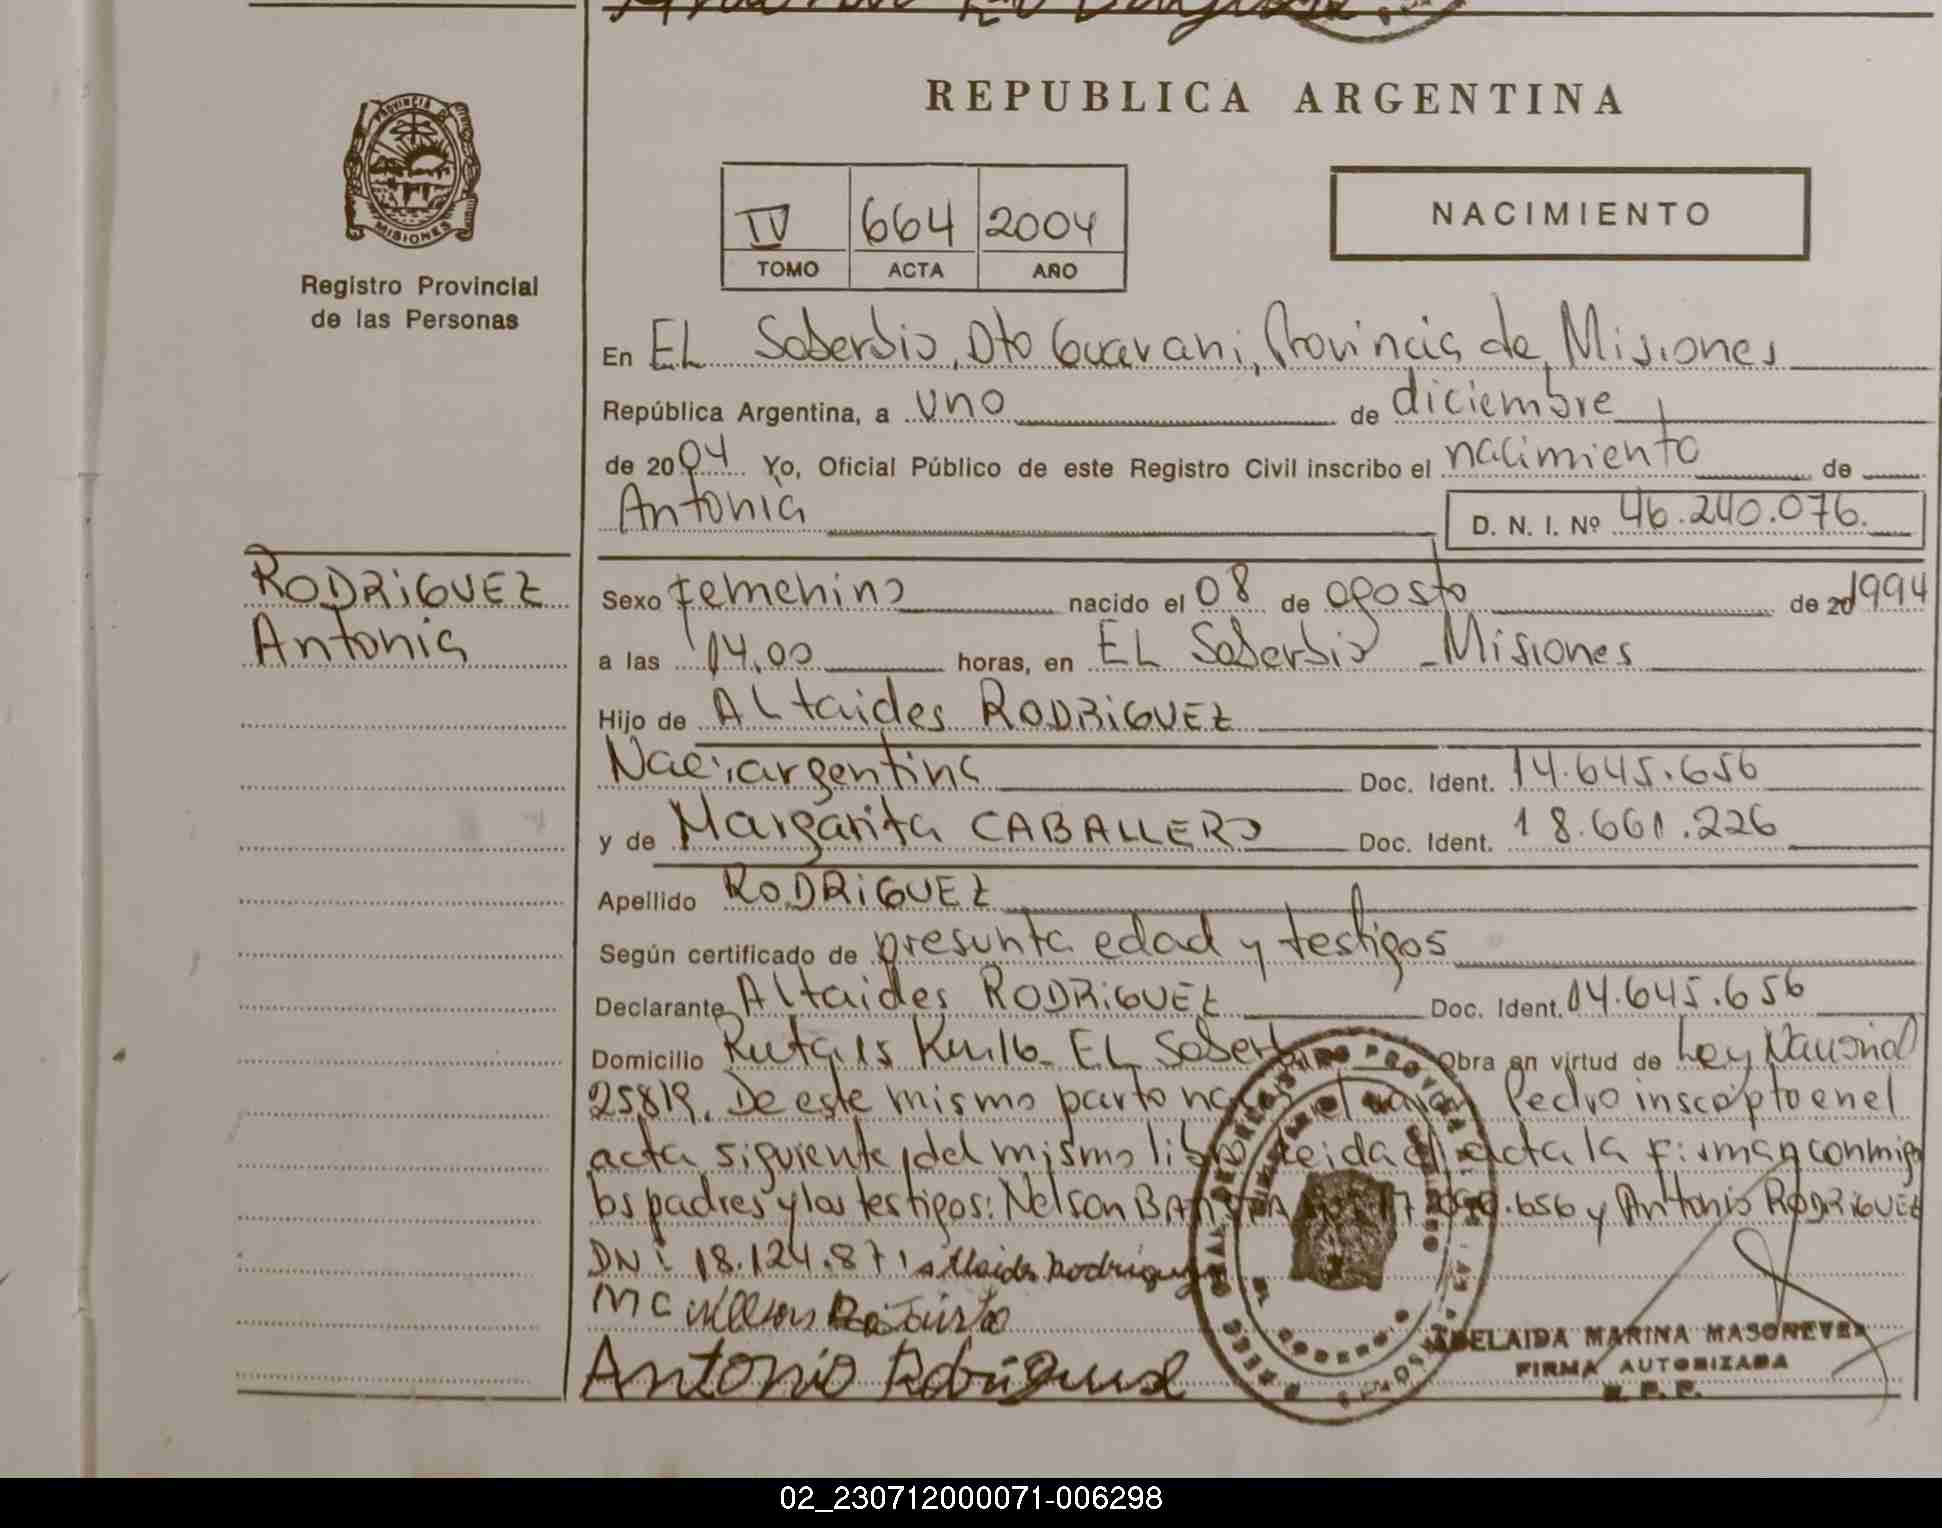 REPUBLICA ARGENTINA
PROVINCIA DE
MISIONES
Registro Provincial
de las Personas
IV 664 2004
TOMO ACTA AÑO
NACIMIENTO
En EL Soberbio, Dto Guarani, Provincia de Misiones
República Argentina, a uno de diciembre
de 2004 Yo, Oficial Público de este Registro Civil inscribo el nacimiento de
Antonia D. N. I. Nº 46.240.076.
RODRIGUEZ
Antonia
Sexo femenino nacido el 08 de agosto de 20 1994
a las 14,00 horas, en EL Soberbio - Misiones
Hijo de Altaides RODRIGUEZ
Nac: argentina Doc. Ident. 14.645.656
y de Margarita CABALLERO Doc. Ident. 18.661.226
Apellido RODRIGUEZ
Según certificado de presunta edad y testigos
Declarante Altaides RODRIGUEZ Doc. Ident. 14.645.656
Domicilio Ruta Km16 - EL Soberb Obra en virtud de Ley Nacional
25819. De este mismo parto el Pedro inscripto en el
acta siguiente, del mismo libro Leida el acta la firman conmigo
los padres y los testigos: Nelson .656 y Antonio RODRIGUEZ
DNI 18.124.871 Altaides Rodriguez
MC Nelson Bautista
Antonio Rodriguez
ADELAIDA MARINA
FIRMA AUTORIZADA
R. P. P.
02_230712000071-006298